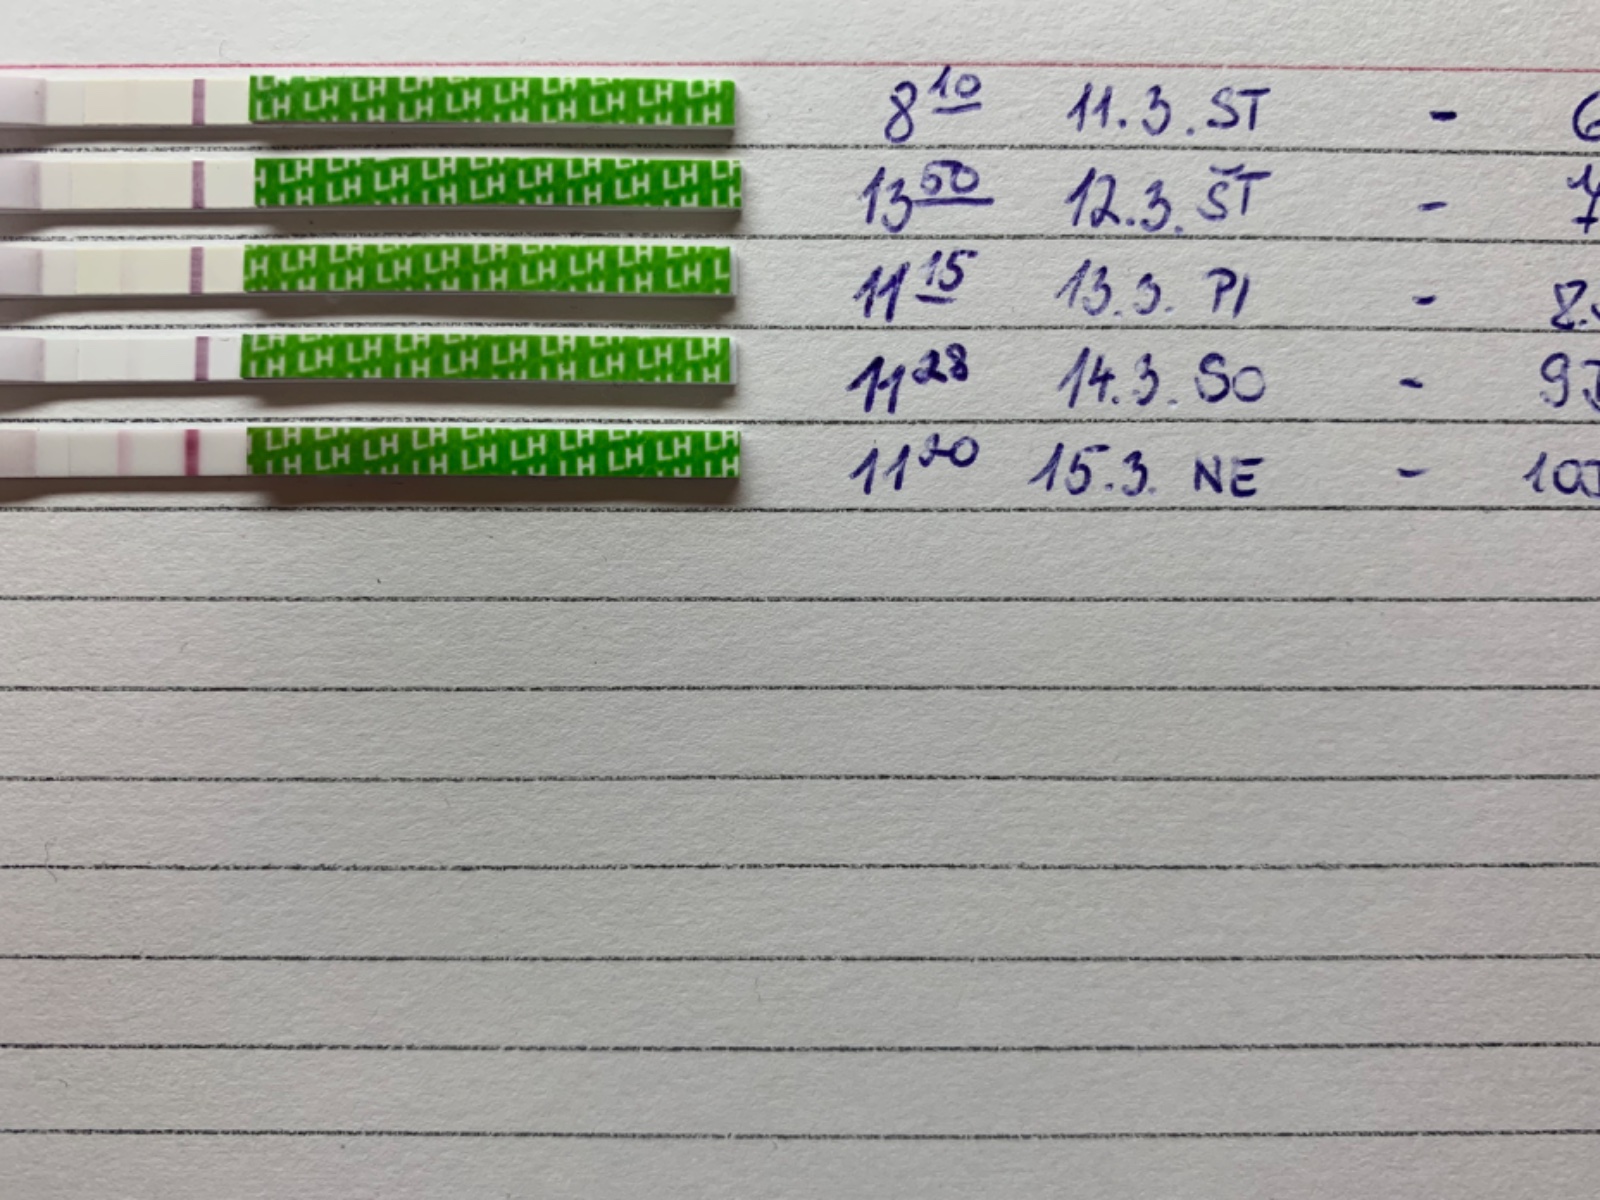 LH LH LH LH LH LH LH LH LH 8 10 11.3. ST - 6
LH LH LH LH LH LH LH LH LH 13 50 12.3. ŠT - 7
LH LH LH LH LH LH LH LH LH 11 15 13.3. PI - 8.
LH LH LH LH LH LH LH LH LH 11 28 14.3. SO - 9
LH LH LH LH LH LH LH LH LH 11 20 15.3. NE - 10